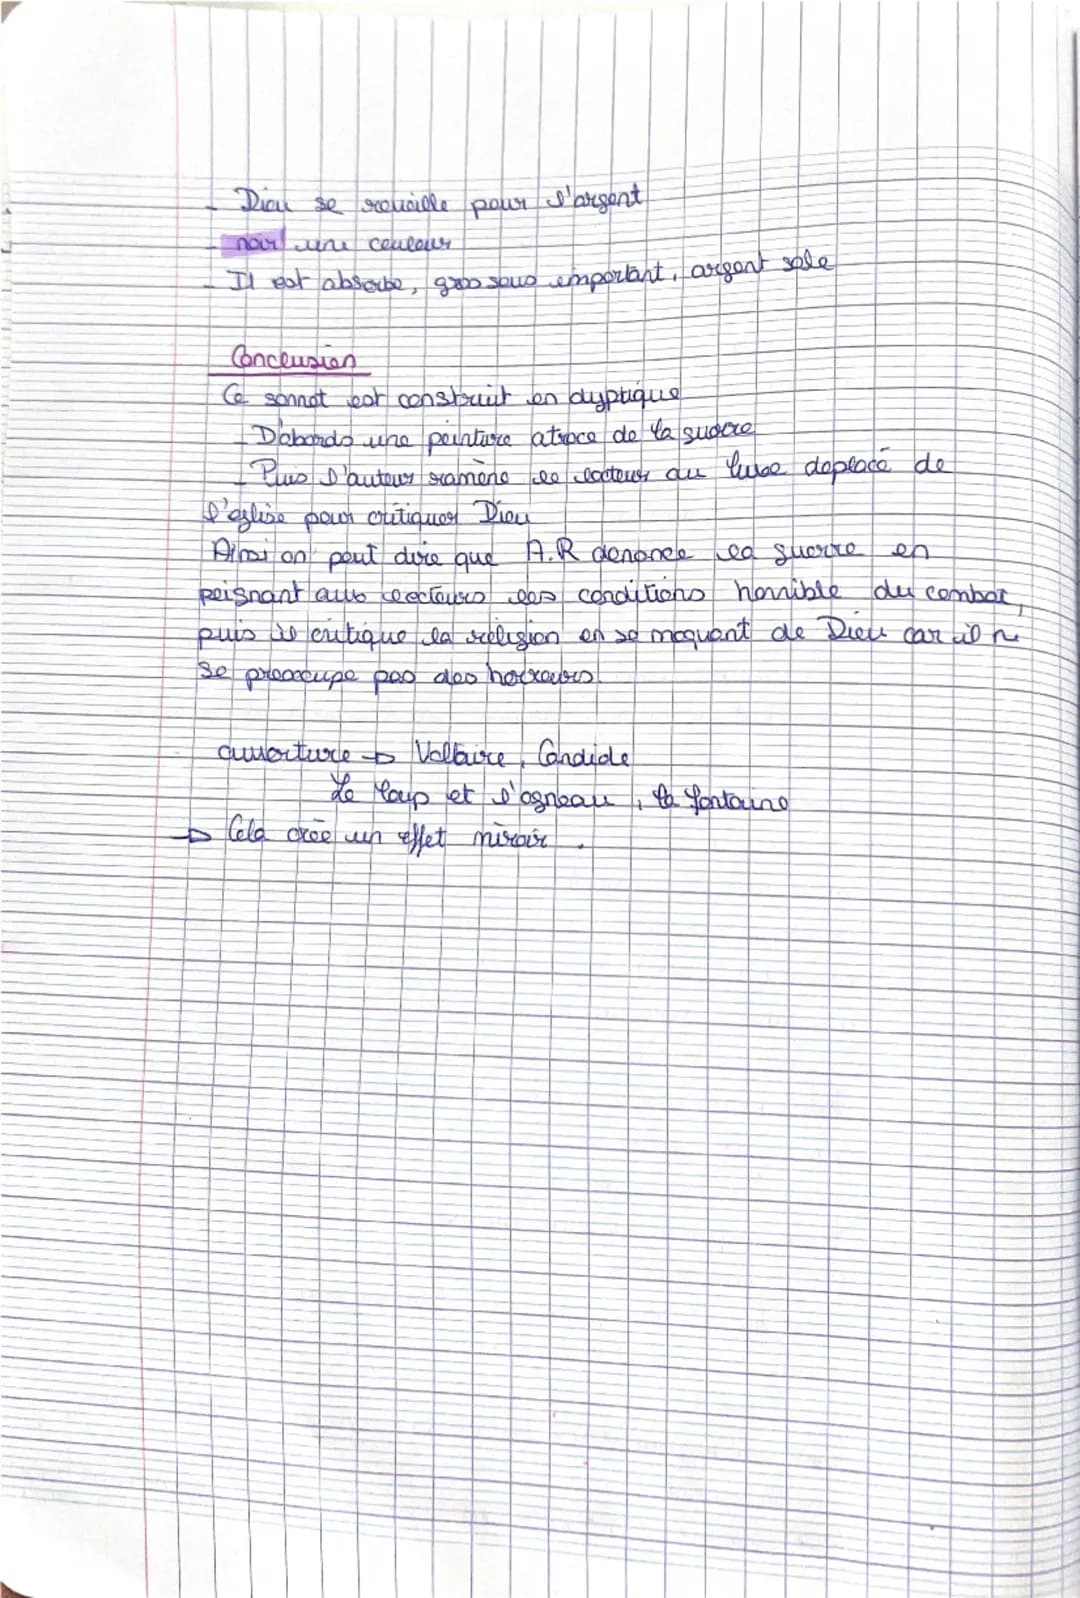 - Dieu se réveille pour l'argent
- noir une couleur
- Il est absorbe, gros sous important, argent sale
Conclusion
Ce sonnet est construit en dyptique
- D'abords une peinture atroce de la guerre
- Puis l'auteur ramène le lecteur au luxe deplacé de
l'église pour critiquer Dieu
Ainsi on peut dire que A.R denonce la guerre en
peignant aux lecteurs des conditions horrible du combat,
puis il critique la religion en se moquant de Dieu car il ne
se preoccupe pas des horreurs.
ouverture → Voltaire, Candide
Le loup et l'agneau, la fontaine
→ Cela crée un effet miroir.